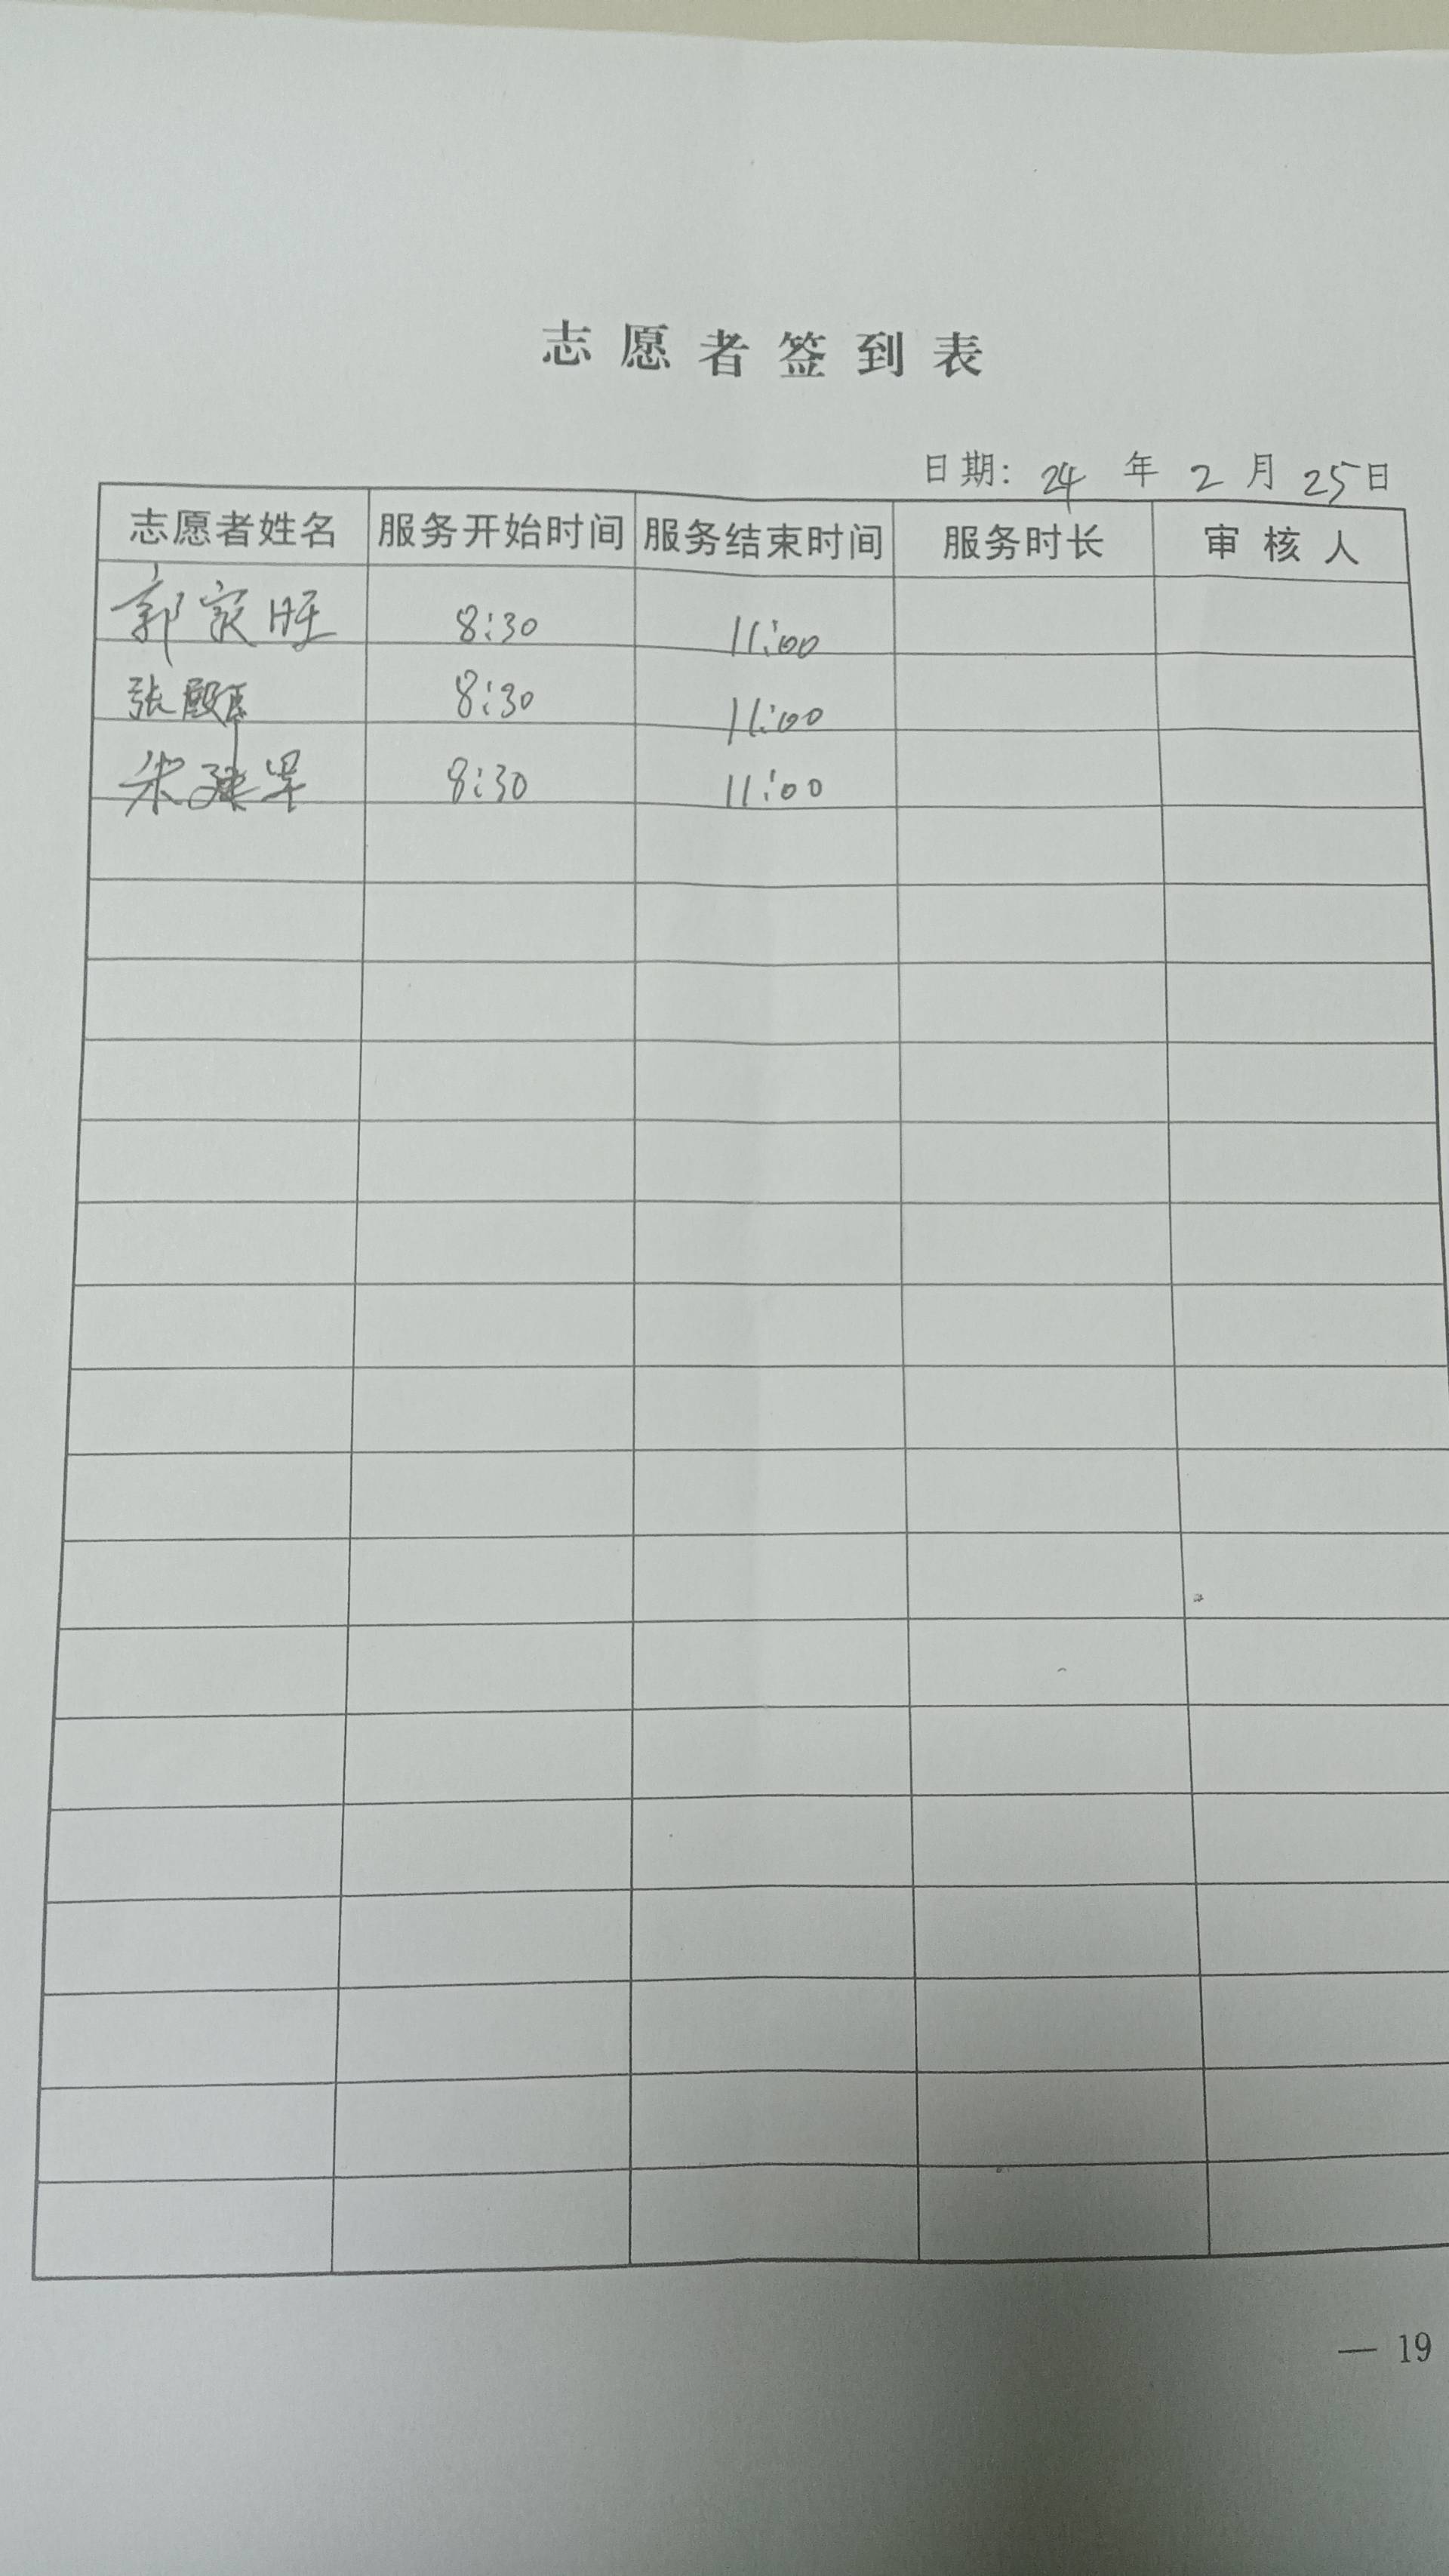 志愿者签到表
日期: 24 年 2 月 25日
志愿者姓名 服务开始时间 服务结束时间 服务时长 审核人
郭家旺 8:30 11:00
张殿 8:30 11:00
朱建军 8:30 11:00
— 19